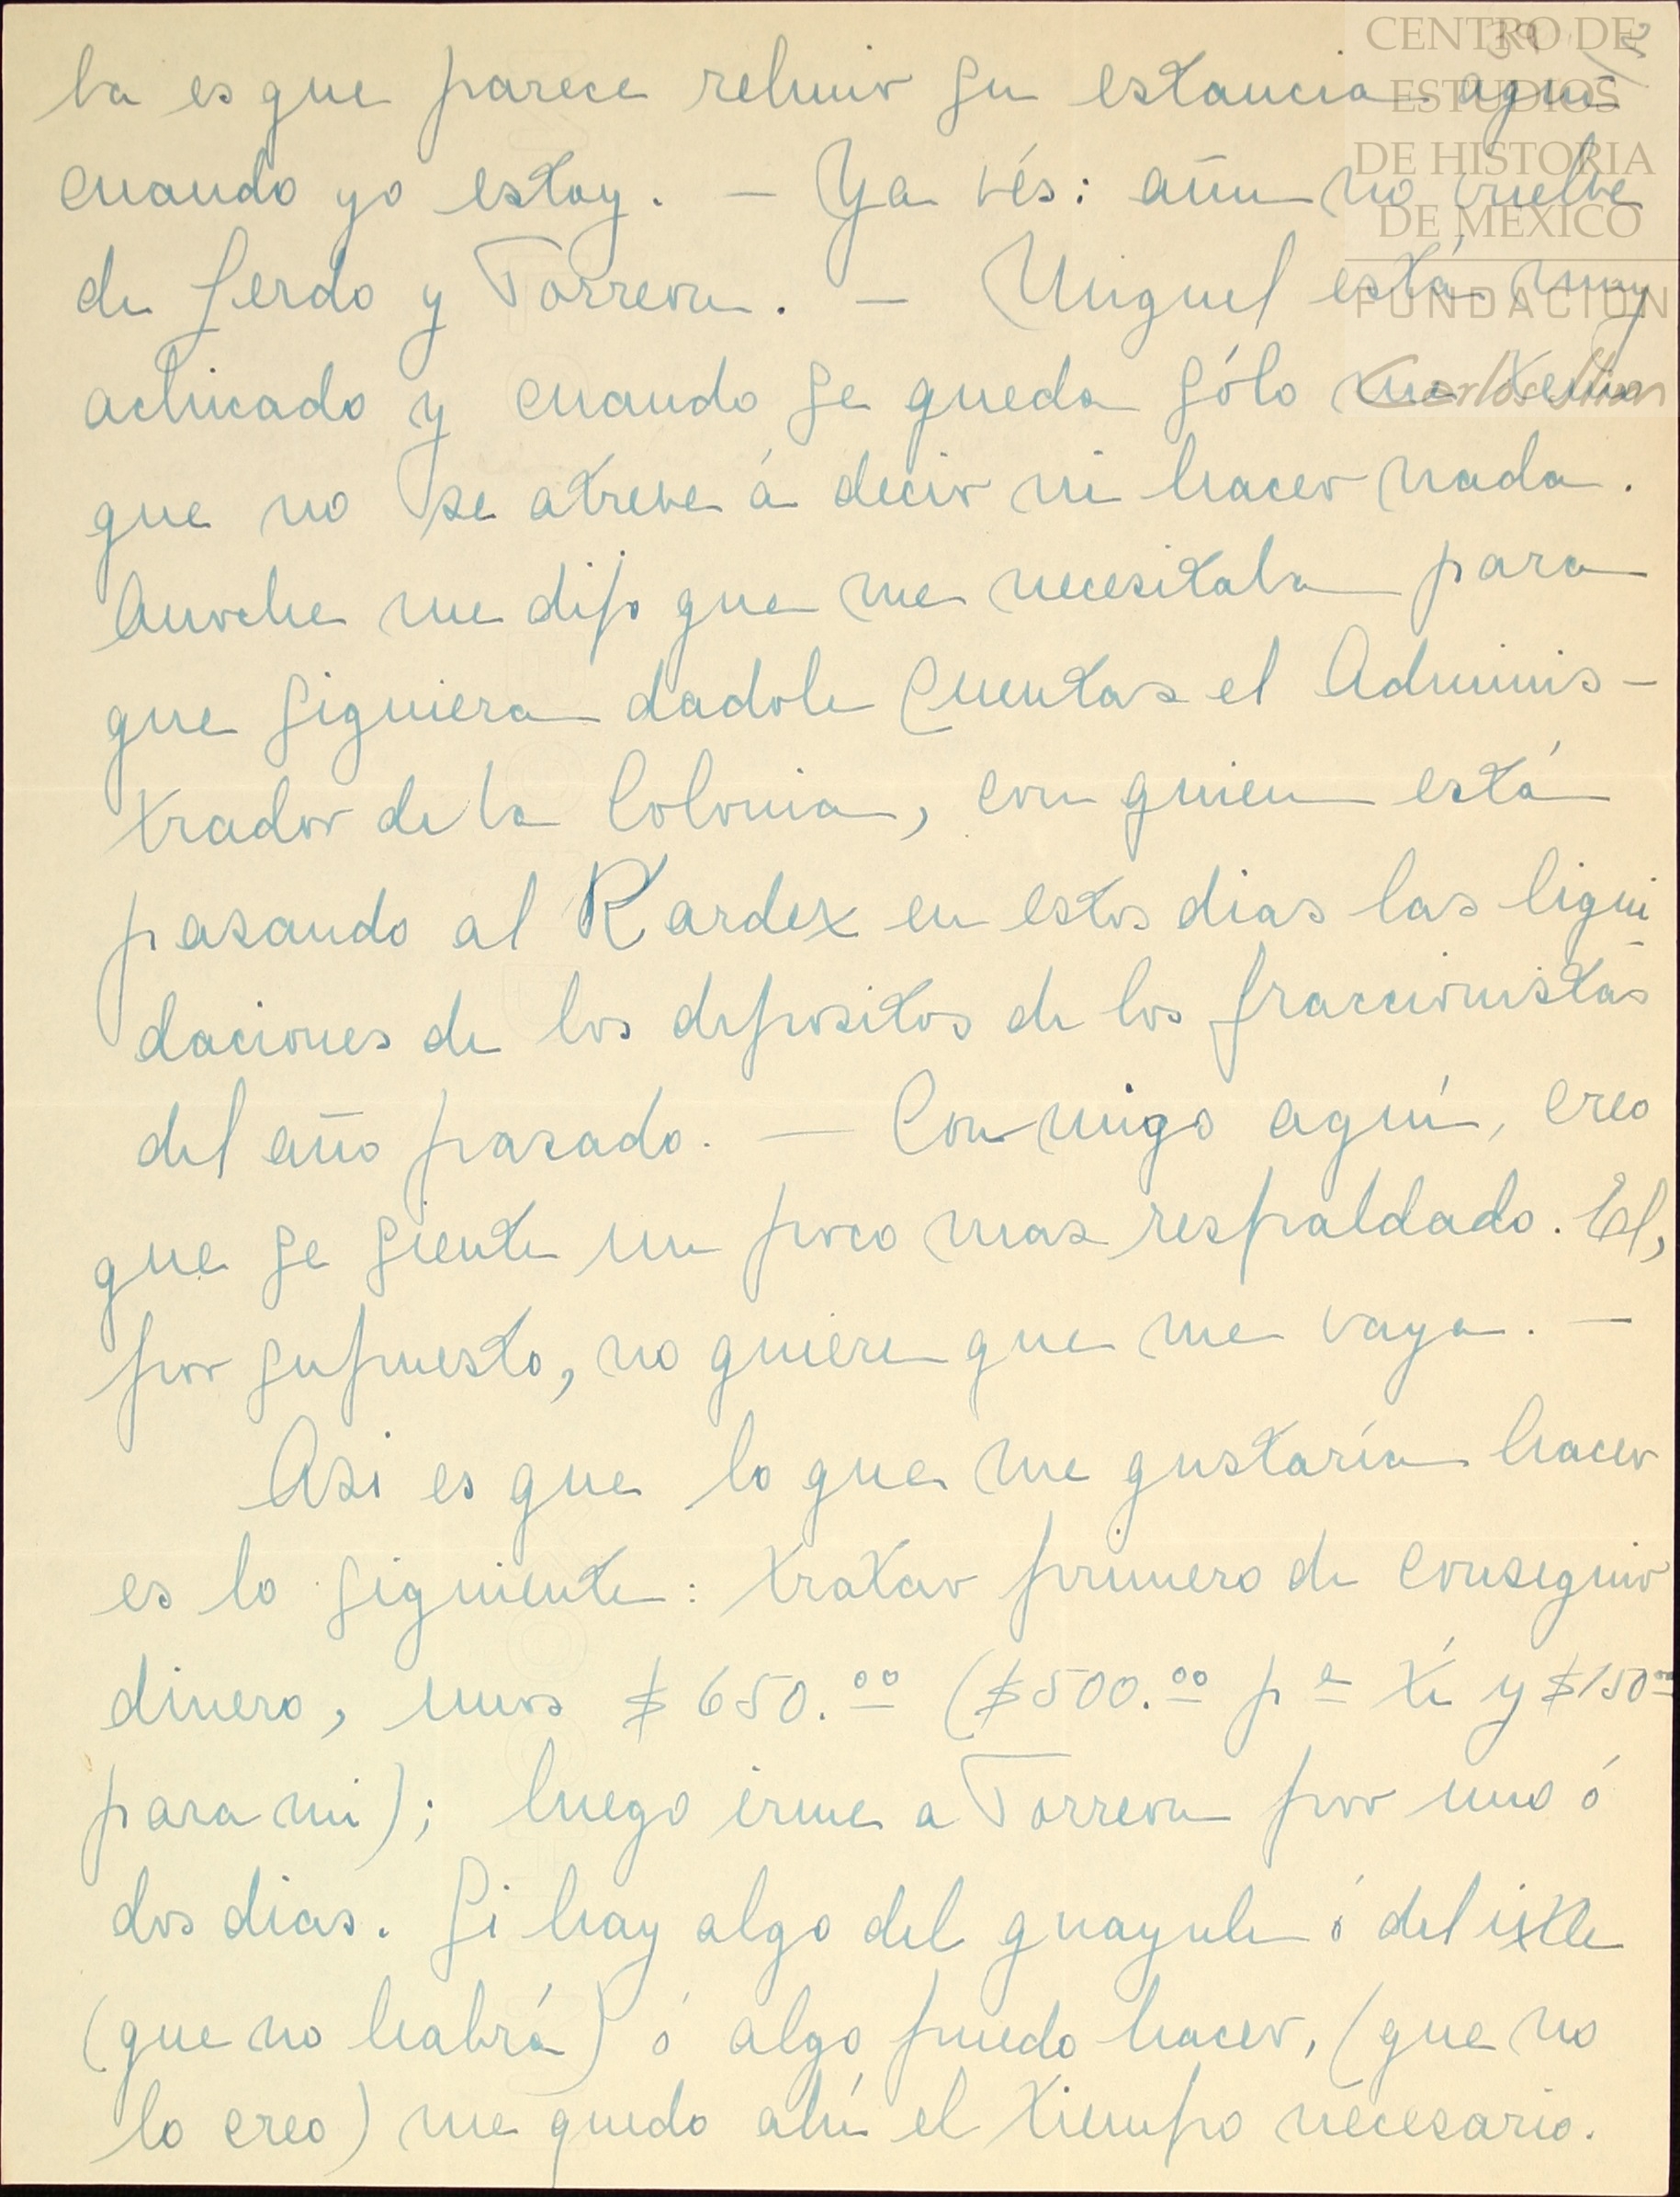 CENTRO DE
ESTUDIOS
DE HISTORIA
DE MEXICO
FUNDACION
Carlos Slim
ba es que parece rehuir su estancia aquí
cuando yo estoy. — Ya vés: aún no vuelve
de Lerdo y Torreon. — Miguel está muy
achicado y cuando se queda sólo me temo
que no se atreve á decir ni hacer nada.
Anoche me dijo que me necesitaba para
que siguiera dadole cuentas el Adminis-
trador de la Colonia, con quien está
pasando al Kardex en estos dias las liqui-
daciones de los depositos de los fraccionistas
del año pasado. — Conmigo aquí, creo
que se siente un poco mas respaldado. El,
por supuesto, no quiere que me vaya. —
Asi es que lo que me gustaría hacer
es lo siguiente: tratar primero de conseguir
dinero, unos $650.00 ($500.00 pa tí y $150.00
para mi); luego irme a Torreon por uno ó
dos dias. Si hay algo del guayule ó del ixtle
(que no habrá) ó algo puedo hacer, (que no
lo creo) me quedo ahí el tiempo necesario.